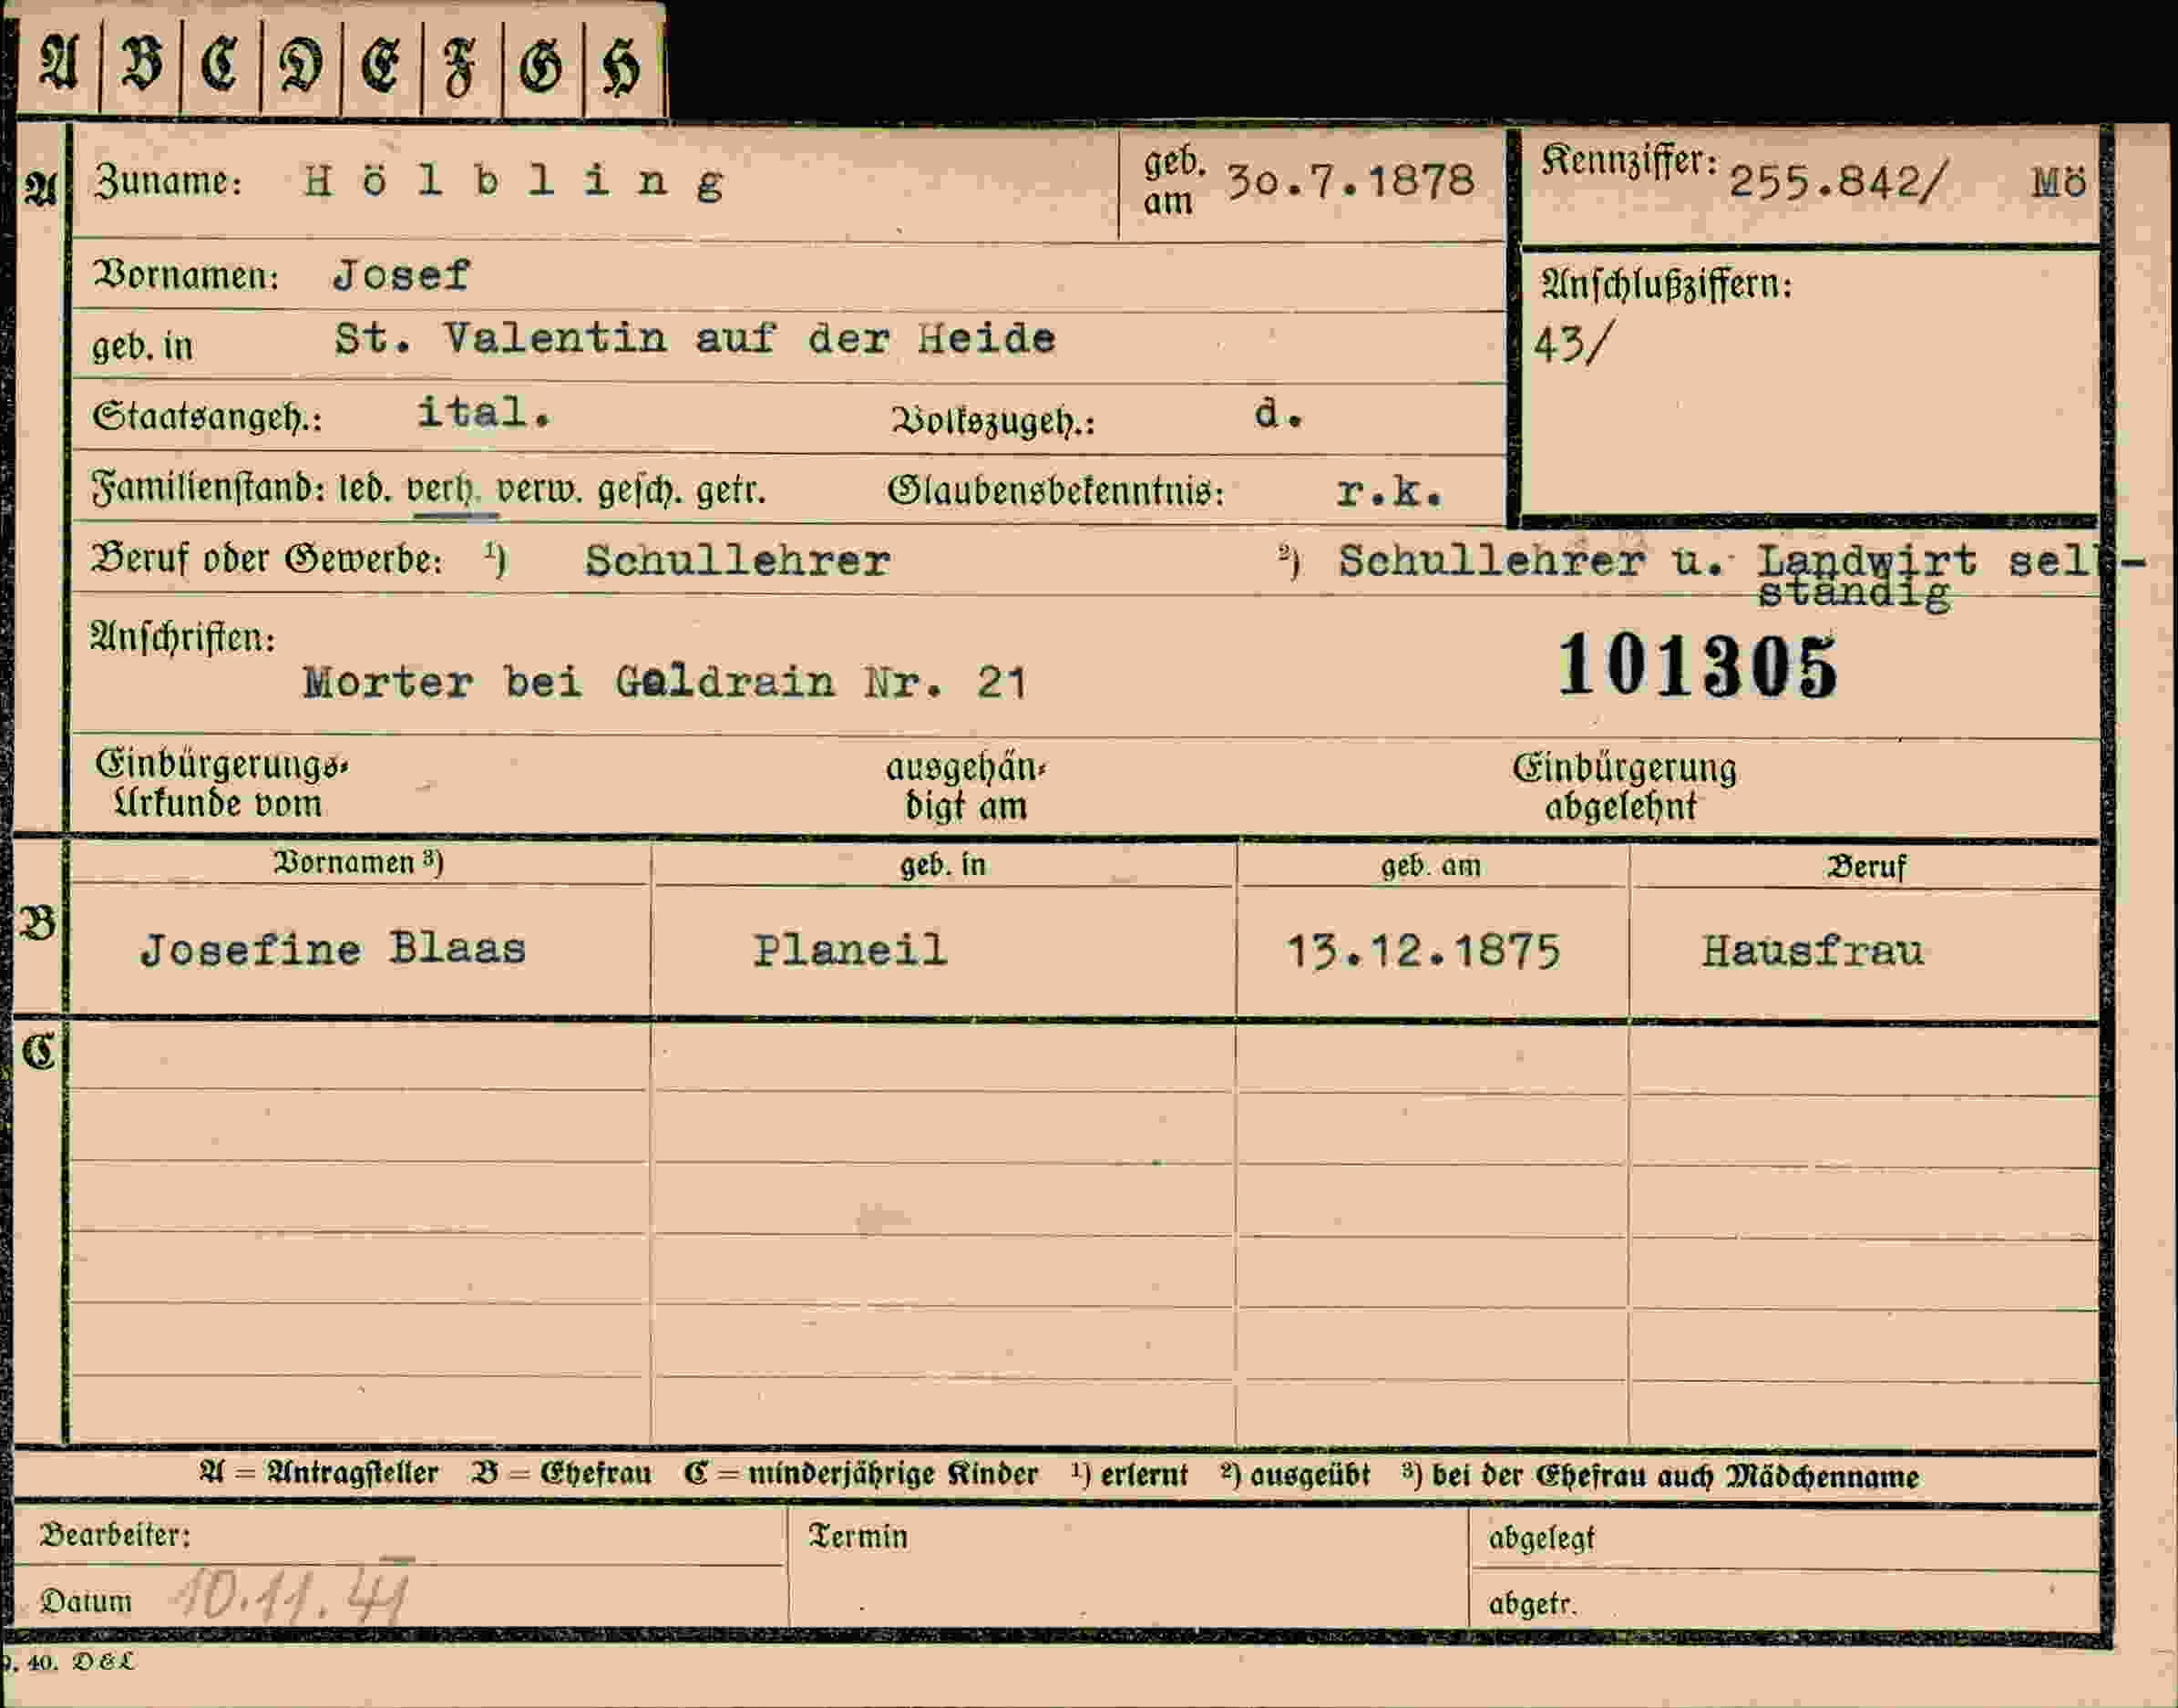 A B C D E F G H
A Zuname: Hölbling geb. am 30.7.1878 Kennziffer: 255.842/ Mö
Vornamen: Josef
Anschlußziffern:
geb. in St. Valentin auf der Heide
43/
Staatsangeh.: ital. Volkszugeh.: d.
Familienstand: led. verh. verw. gesch. getr. Glaubensbekenntnis: r.k.
Beruf oder Gewerbe: ¹) Schullehrer ²) Schullehrer u. Landwirt selb-
ständig
Anschriften:
Morter bei Goldrain Nr. 21
101305
Einbürgerungs- ausgehän- Einbürgerung
Urkunde vom digt am abgelehnt
Vornamen ³) geb. in geb. am Beruf
B Josefine Blaas Planeil 13.12.1875 Hausfrau
C
A = Antragsteller B = Ehefrau C = minderjährige Kinder ¹) erlernt ²) ausgeübt ³) bei der Ehefrau auch Mädchenname
Bearbeiter: Termin abgelegt
Datum 10.11.41 abgetr.
9. 40. D & L